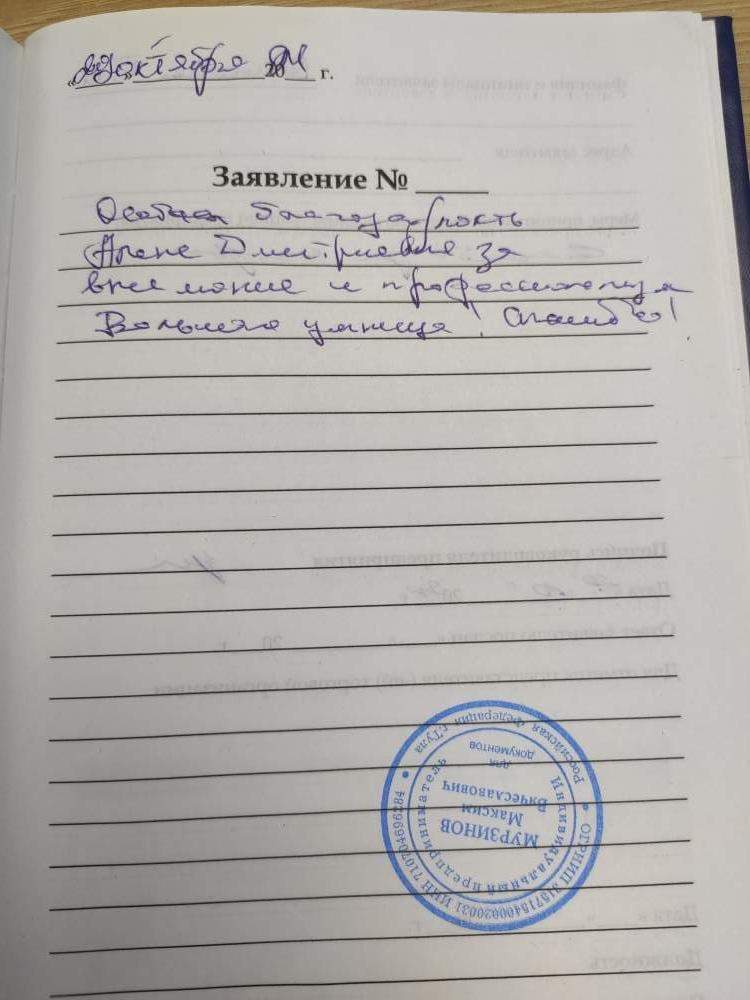 октября 20 г.
Заявление №
Особая благодарность
Алене Дмитриевне за
внимание и профессионализм
Большая умница! Спасибо!
Подпись руководителя предприятия
Российская Федерация г.Тула
ОГРНИП 315715400020031 ИНН 710704696284
Индивидуальный предприниматель
МУРЗИНОВ
Максим
Вячеславович
для
документов